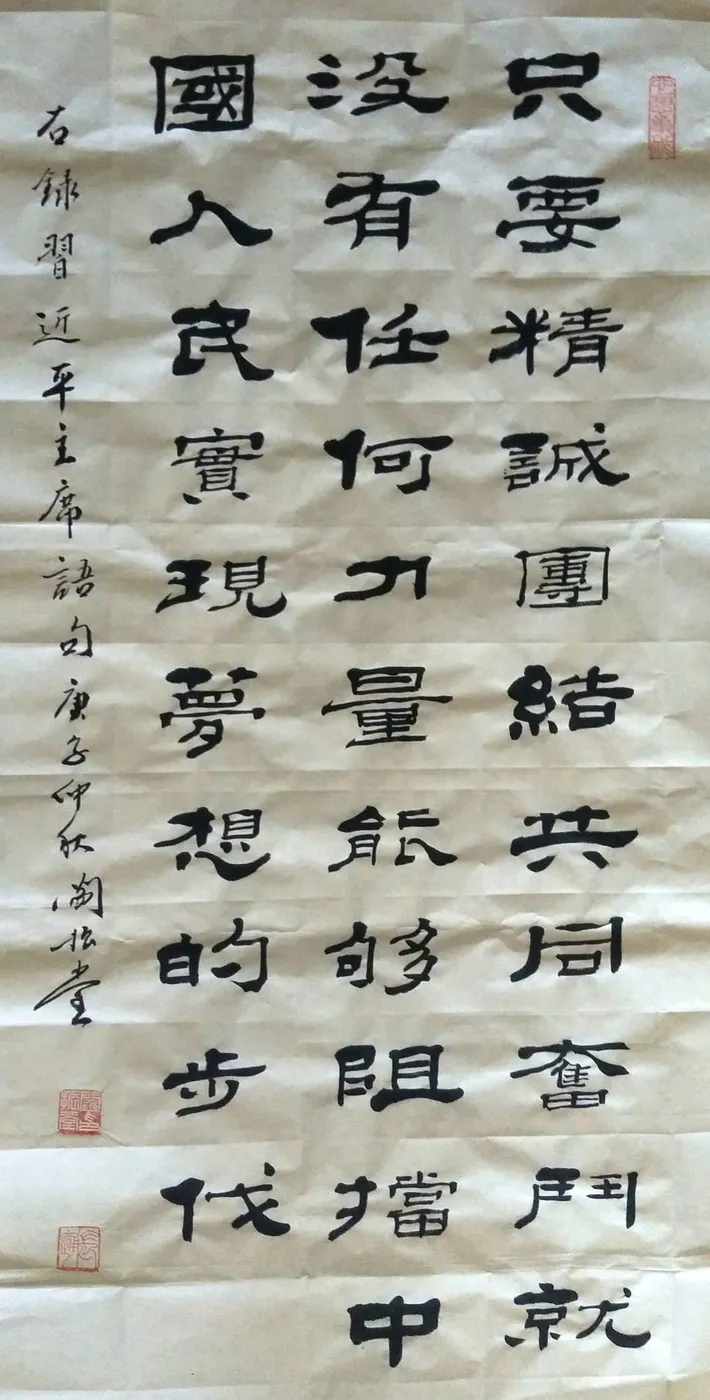 只要精誠團結共同奮鬥就
没有任何力量能够阻擋中
國人民實現夢想的步伐
右録習近平主席語句庚子仲秋闞振堂